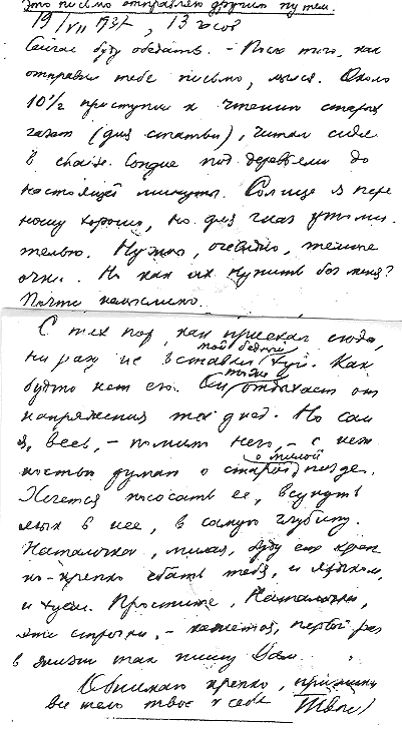 Это письмо отправляю другим путем.
19/VII 1937, 13 часов
Сейчас буду обедать. После того, как
отправил тебе письмо, мылся. Около
10 1/2 приступил к чтению старых
газет (для статьи), читал сидя
в chaise longue под деревьями до
настоящей минуты. Солнце я пере
ношу хорошо, но для глаз утоми-
тельно. Нужны, очевидно, темные
очки. Но как их купить без меня?
Почти немыслимо.
С тех пор, как приехал сюда,
ни разу не вставал мой бедный хуй. Как
будто нет его. Он тоже отдыхает от
напряжения тех дней. Но сам
я, весь, - помимо него, - с неж
ностью думаю о старой, о милой пизде.
Хочется пососать ее, всунуть
язык в нее, в самую глубину.
Наталочка, милая, буду еще креп
ко-крепко ебать тебя, и языком,
и хуем. Простите, Наталочка,
эти строчки, - кажется, первый раз
в жизни так пишу Вам.
Обнимаю крепко, прижимая
все тело твое к себе. Твой